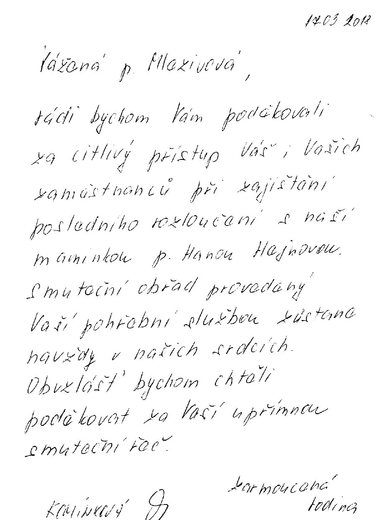 17.03 2017
Vážená p. Mazivová,
rádi bychom Vám poděkovali
za citlivý přístup Váš i Vašich
zaměstnanců při zajištění
posledního rozloučení s naší
maminkou p. Hanou Hejnovou.
Smuteční obřad provedený
Vaší pohřební službou zůstane
navždy v našich srdcích.
Obvzlášť bychom chtěli
poděkovat za Vaší upřímnou
smuteční řeč.
zarmoucená
rodina